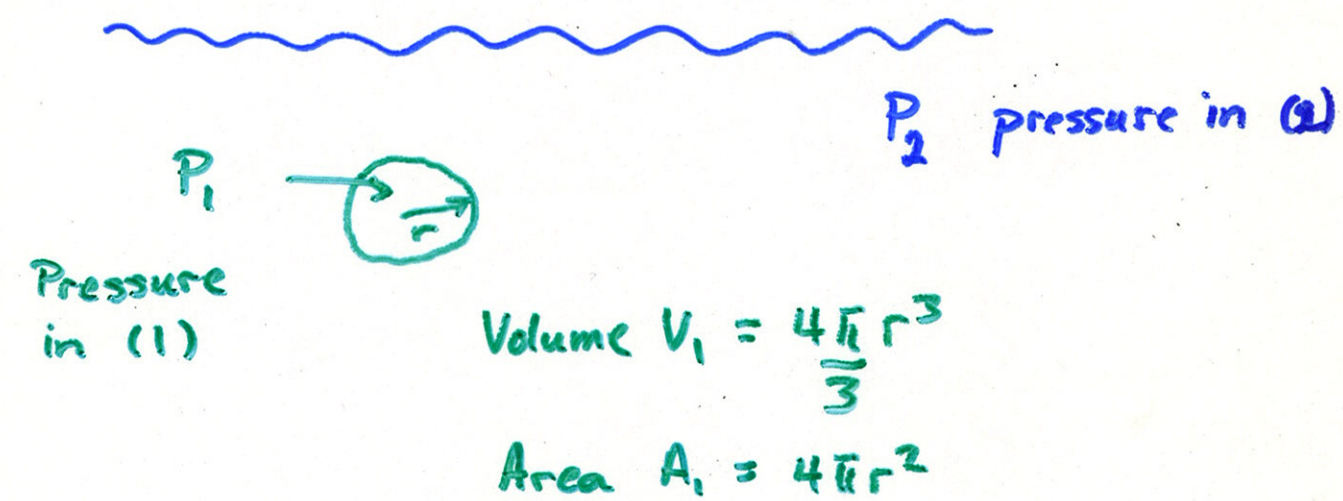 P₂ pressure in (2)
P₁
r
Pressure
in (1)
Volume V₁ = 4π/3 r³
Area A₁ = 4πr²